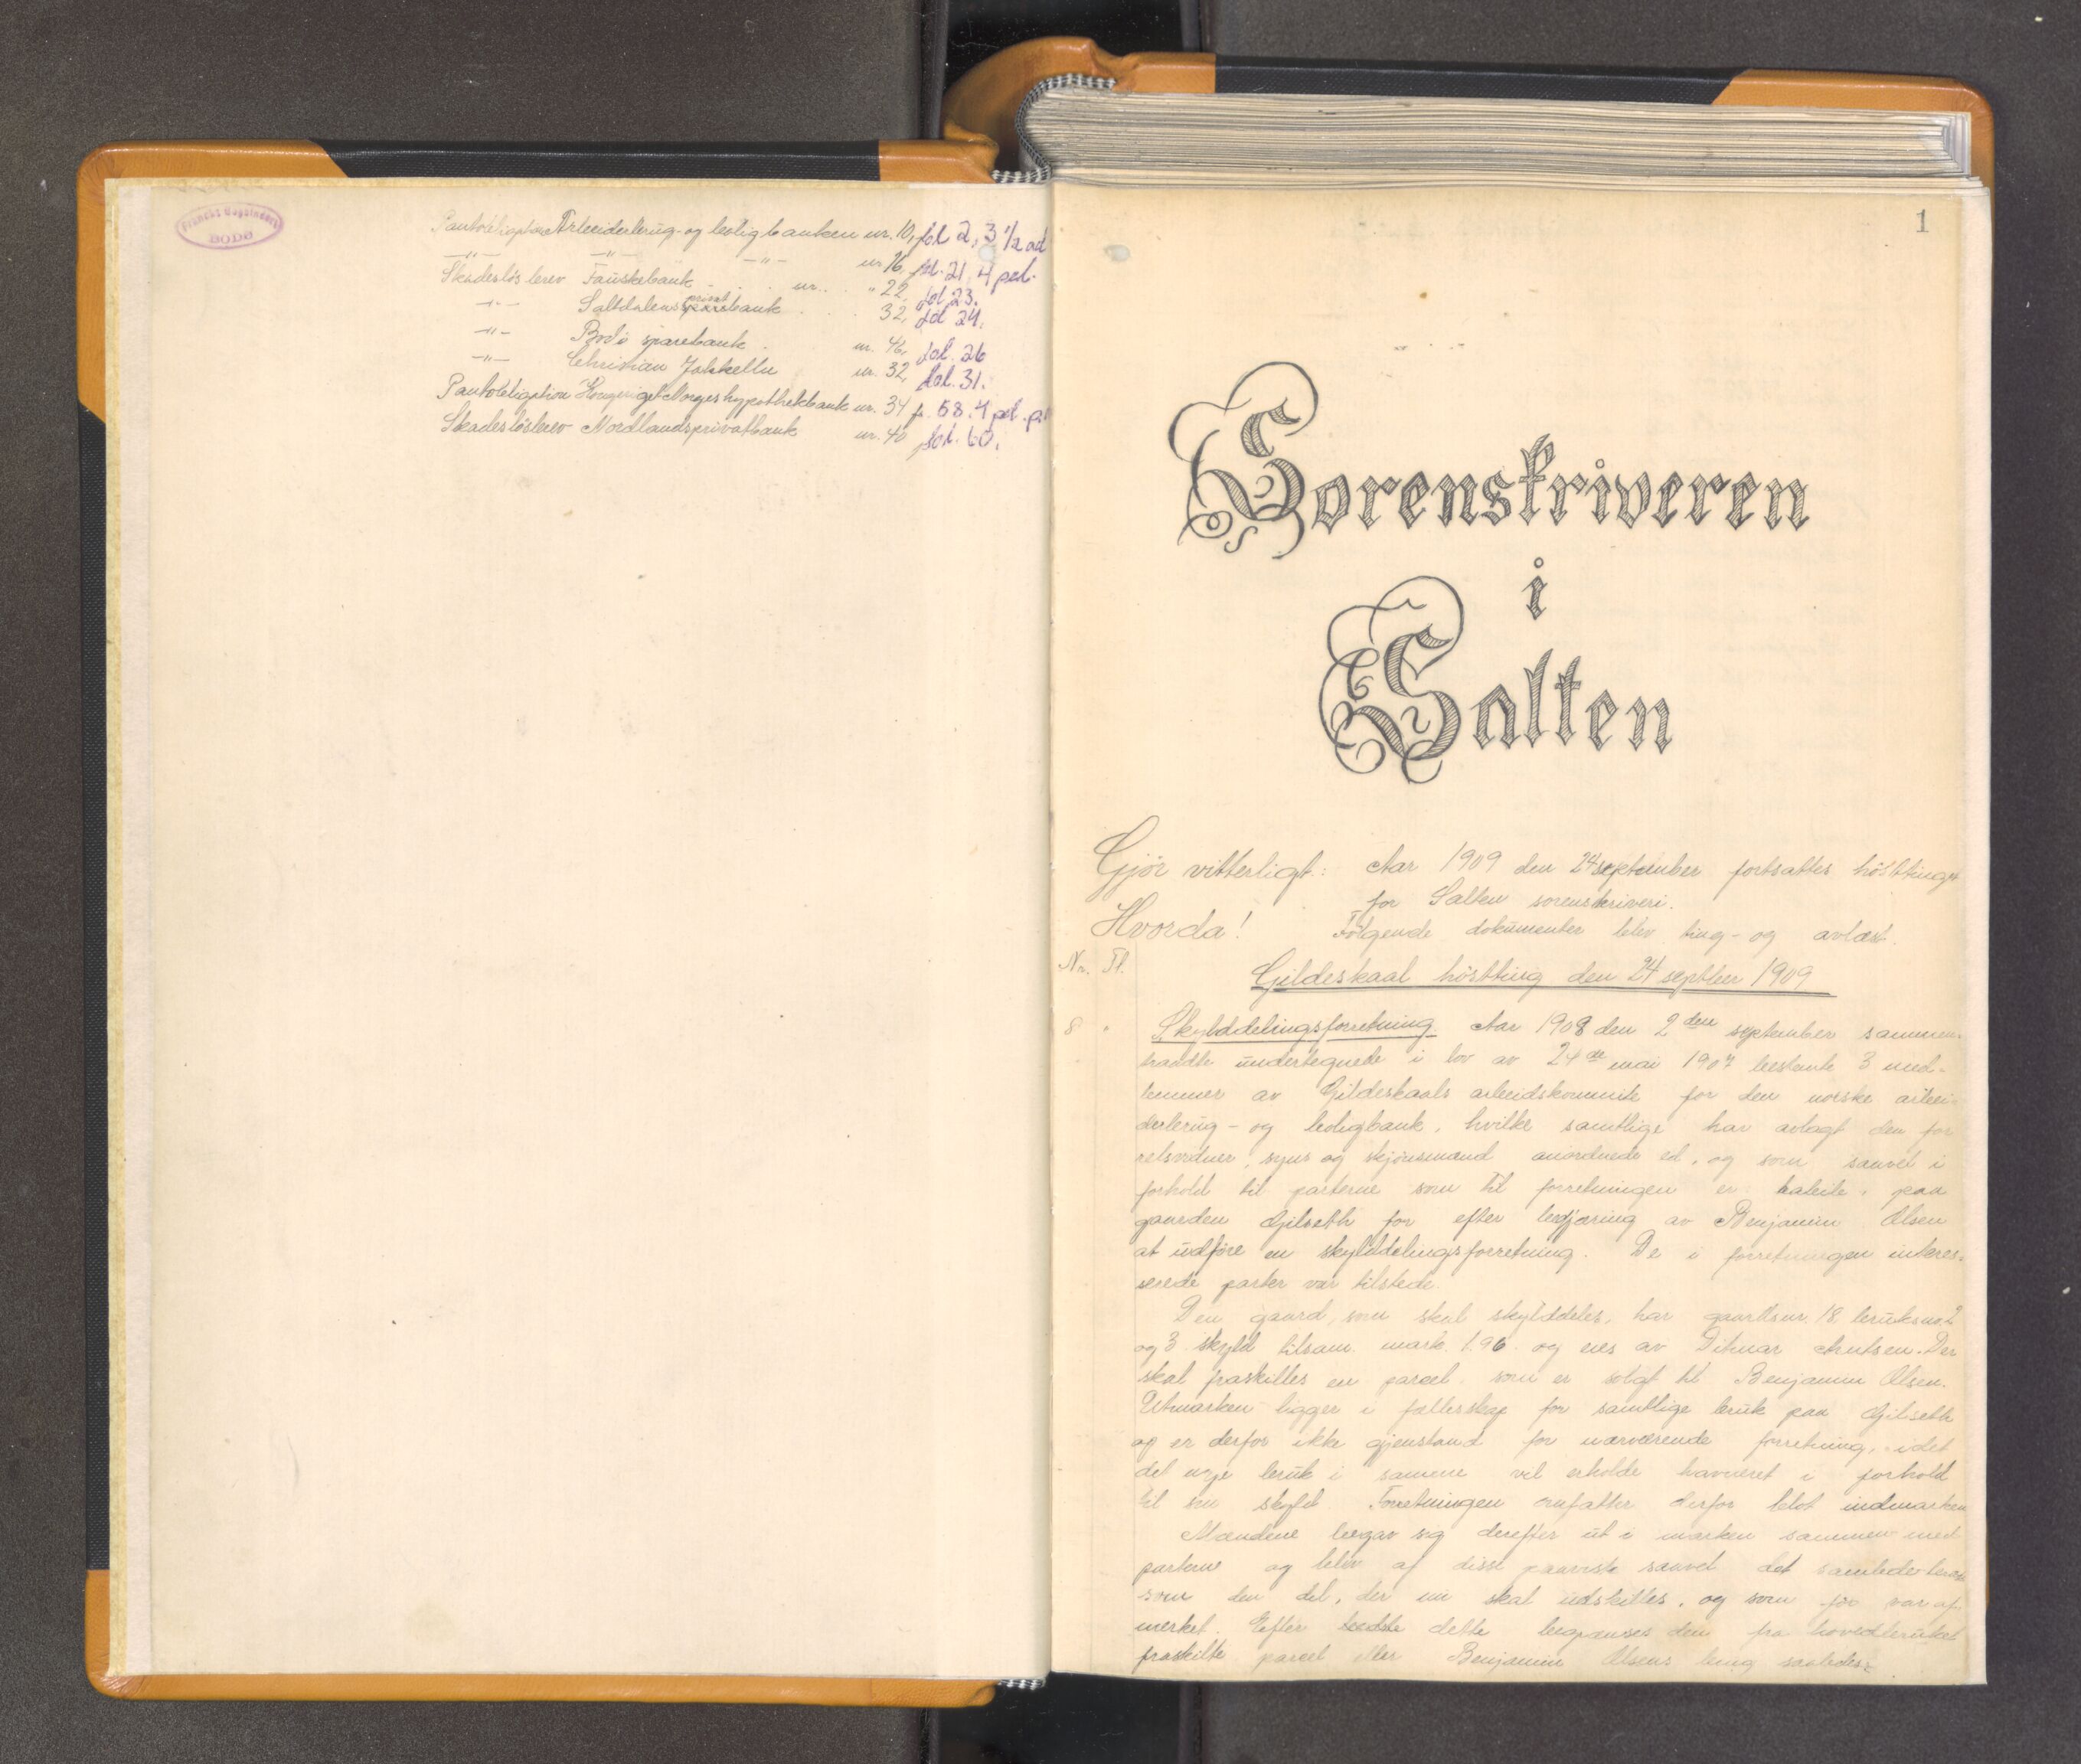 BODØ
Pantobligation Arbeiderbrug- og boligbanken nr. 10, fol 2, 3 1/2 od
—"— —"— —"— nr 16, fol. 21, 4 pct.
Skadesløsbrev Fauskebank nr. " 22, fol 23.
—"— Saltdalens privatbank 32, fol 24.
—"— Bodø sparebank nr. 46, fol. 26
—"— Christian Jakhelln nr. 32, fol. 31.
Pantobligation Kongeriget Norges hypothekbank nr. 34 f. 58. 4 pct. p.
Skadesløsbrev Nordlandsprivatbank nr. 40 fol. 60.
1
Sorenskriveren
i
Salten
Gjör vitterligt: Aar 1909 den 24 september fortsattes høsttinget
for Salten sorenskriveri.
Hvorda! Følgende dokumenter blev ting- og avlæst.
Nr. Fl. Gildeskaal høstting den 24 septber 1909
8 " Skylddelingsforretning. Aar 1908 den 2den september sammen-
traadte undertegnede i lov av 24de mai 1907 bestemte 3 med-
lemmer av Gildeskaals arbeidskommite for den norske arbei-
derbrug- og boligbank, hvilke samtlige har avlagt den for
retsvidner, syns og skjønsmænd anordnede ed, og som saavel i
forhold til parterne som til forretningen er habile, paa
gaarden Gilseth for efter begjæring av Benjamin Olsen
at udføre en skylddelingsforretning. De i forretningen interes-
serede parter var tilstede.
Den gaard, som skal skylddeles, har gaardsnr. 18 bruksnr. 2
og 3 skyld tilsam. mark. 1.96 og eies av Ditmar Antsen. Der
skal fraskilles en parcel som er solgt til Benjamin Olsen.
Utmarken ligger i fællesskap for samtlige bruk paa Gilseth
og er derfor ikke gjenstand for nærværende forretning, idet
det nye bruk i samme vil erholde havneret i forhold
til sin skyld. Forretningen omfatter derfor blot indmarken
Mændene begav sig derefter ut i marken sammen med
parterne og blev af disse paavist saavel det samlede bruk
som den del, der nu skal udskilles, og som før var af-
merket. Efter dette begrænses den fra hovedbruket
fraskilte parcel eller Benjamin Olsens brug saaledes: